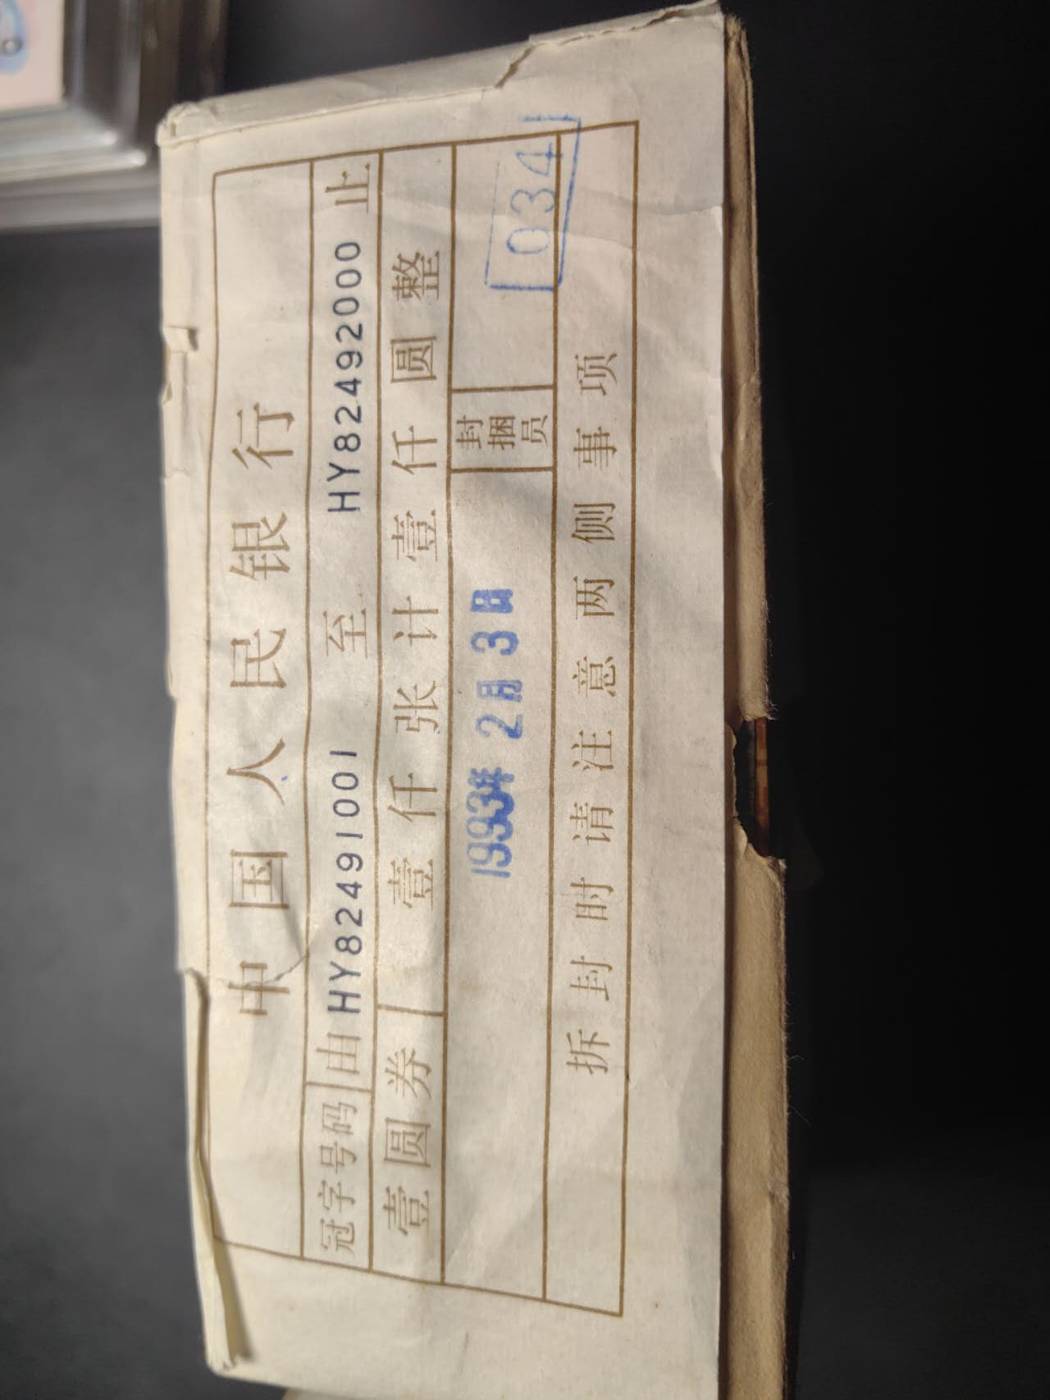 中国人民银行
冠字号码 由 HY82491001 至 HY82492000 止
壹圆券 壹仟张计壹仟圆整
1993年 2月 3日 封捆员 034
拆封时请注意两侧事项